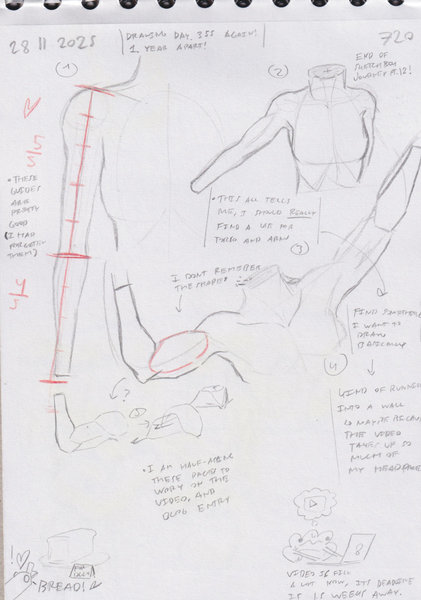 28 11 2025
DRAWING DAY 355 AGAIN!
1 YEAR APART!
720
END OF
SKETCHBOOK
JOURNEY PT.12!
1
2
5/5
• THESE
GUIDES
ARE
PRETTY
GOOD
(I HAD
FORGOTTEN
THEM)
• THIS ALL TELLS
ME, I SHOULD REALLY
FIND A
FOR
TORSO AND ARM
3
I DON'T REMEMBER
4/4
FIND SOMETHING
I WANT TO
DRAW
4
KIND OF RUNNING
INTO A WALL
MAYBE BECAUSE
THE VIDEO
TAKES UP SO
MUCH OF
MY HEADSPACE
?
• I AM HALF-
THESE PAGES TO
WORK ON THE
VIDEO, AND
BLOG ENTRY
!
OR
BREAD!
8
VIDEO IS
A LOT NOW, ITS DEADLINE
IS 1.5 WEEKS AWAY.